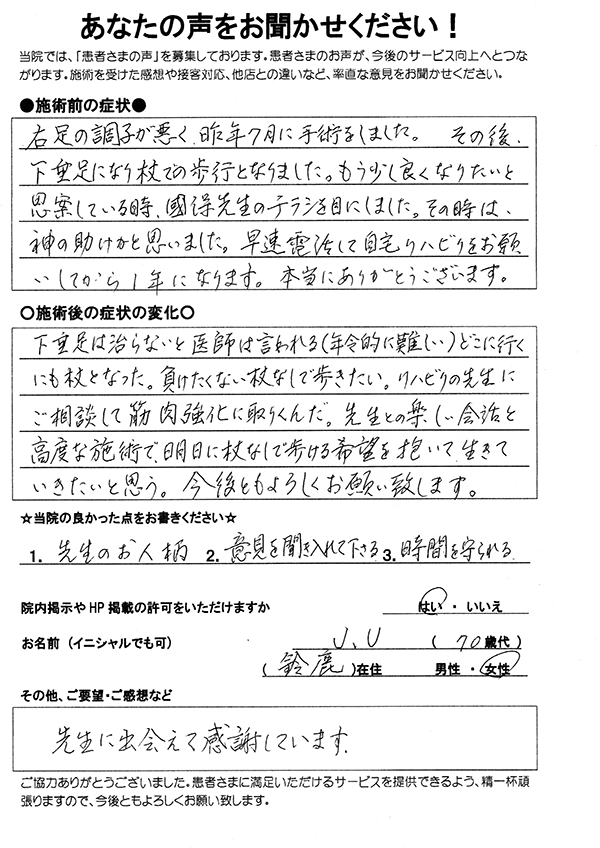 あなたの声をお聞かせください！
当院では、「患者さまの声」を募集しております。患者さまのお声が、今後のサービス向上へとつな
がります。施術を受けた感想や接客対応、他店との違いなど、率直な意見をお聞かせください。
●施術前の症状●
右足の調子が悪く、昨年7月に手術をしました。 その後、
下垂足になり杖での歩行となりました。もう少し良くなりたいと
思案している時、國保先生のチラシを目にしました。その時は、
神の助けかと思いました。早速電話して自宅リハビリをお願
いしてから1年になります。本当にありがとうございます。
○施術後の症状の変化○
下垂足は治らないと医師は言われる(年令的に難しい)どこに行く
にも杖となった。負けたくない杖なしで歩きたい。リハビリの先生に
ご相談して筋肉強化に取りくんだ。先生との楽しい会話と
高度な施術で、明日に杖なしで歩ける希望を抱いて生きて
いきたいと思う。今後ともよろしくお願い致します。
☆当院の良かった点をお書きください☆
1. 先生のお人柄 2. 意見を聞き入れて下さる 3. 時間を守られる
院内掲示やHP掲載の許可をいただけますか はい・いいえ
お名前（イニシャルでも可） J.U （70歳代）
（鈴鹿）在住 男性・女性
その他、ご要望・ご感想など
先生に出会えて感謝しています。
ご協力ありがとうございました。患者さまに満足いただけるサービスを提供できるよう、精一杯頑
張りますので、今後ともよろしくお願い致します。